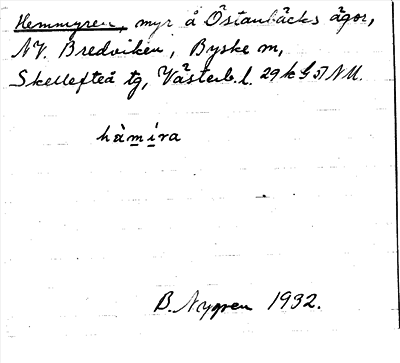 Hemmyren, myr å Östanbäcks ägor,
NV. Bredviken, Byske sn,
Skellefteå tg, Västerb. l. 29 k S 57 NU.
hàmíra
B. Nygren 1932.